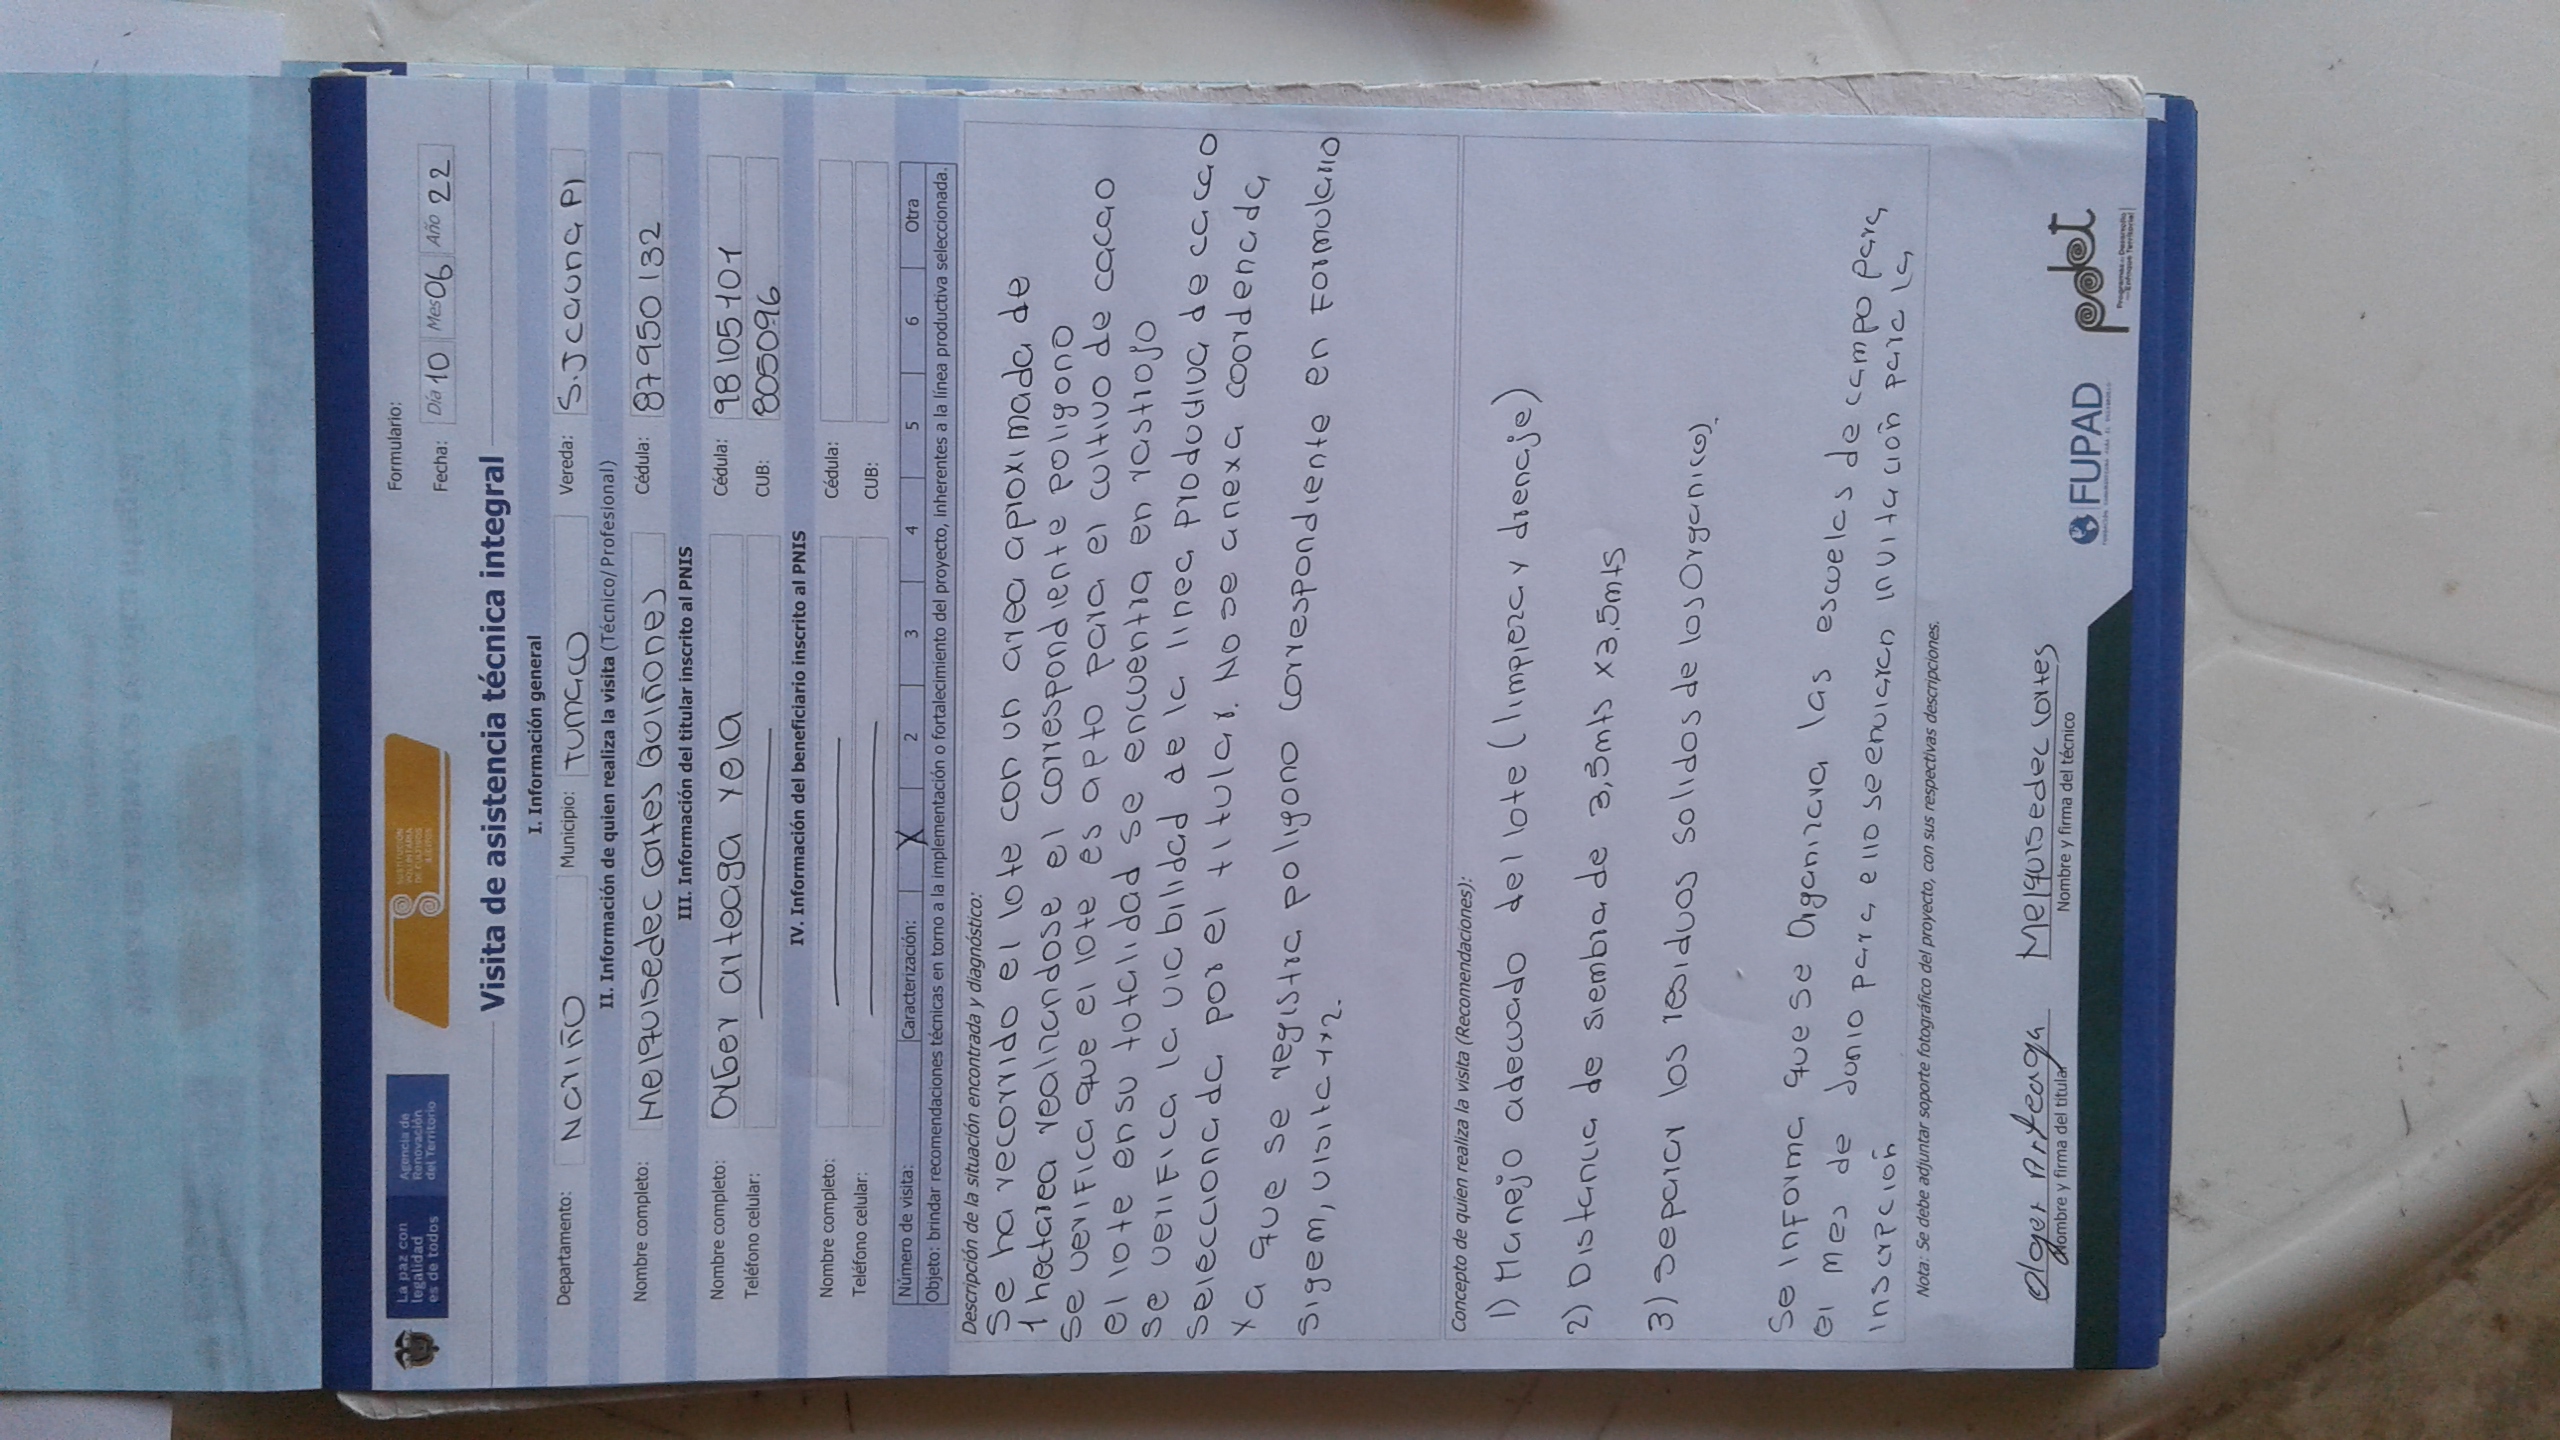 La paz con
legalidad
es de todos
Agencia de
Renovación
del Territorio
SUSTITUCIÓN
VOLUNTARIA
DE CULTIVOS
ILÍCITOS
Formulario:
Fecha: Día 10 Mes 06 Año 22
Visita de asistencia técnica integral
I. Información general
Departamento: Nariño Municipio: Tumaco Vereda: S.Jcauna Pl
II. Información de quien realiza la visita (Técnico/Profesional)
Nombre completo: Melquisedec cortes Quiñones Cédula: 87950132
III. Información del titular inscrito al PNIS
Nombre completo: arteaga yela Cédula: 98105101
Teléfono celular: CUB: 805096
IV. Información del beneficiario inscrito al PNIS
Nombre completo: Cédula:
Teléfono celular: CUB:
Número de visita: Caracterización: X 2 3 4 5 6 Otra
Objeto: brindar recomendaciones técnicas en torno a la implementación o fortalecimiento del proyecto, inherentes a la línea productiva seleccionada.
Descripción de la situación encontrada y diagnóstico:
Se ha recorrido el lote con un area aproximada de
1 hectarea realinandose el correspondiente poligono
Se verifica que el lote es apto para el cultivo de cacao
el lote en su totalidad se encuentra en rastrojo
Se verifica la viabilidad de la linea productiva de cacao
seleccionada por el titular. No se anexa coordenada
ya que se registra poligono correspondiente en Formulario
sigem, visita 1x2.
Concepto de quien realiza la visita (Recomendaciones):
1) Manejo adecuado del lote (limpieza y drenaje)
2) Distancia de siembra de 3,5mts x3,5mts
3) Separar los residuos solidos de los Organicos.
Se informa que se Organizara las escuelas de campo para
el mes de Junio para ello se enviaran invitación para la
inscrpción
Nota: Se debe adjuntar soporte fotográfico del proyecto, con sus respectivas descripciones.
Olger Arteaga
Nombre y firma del titular
Melquisedec cortes
Nombre y firma del técnico
FUPAD
pdet
Programas de Desarrollo
con Enfoque Territorial